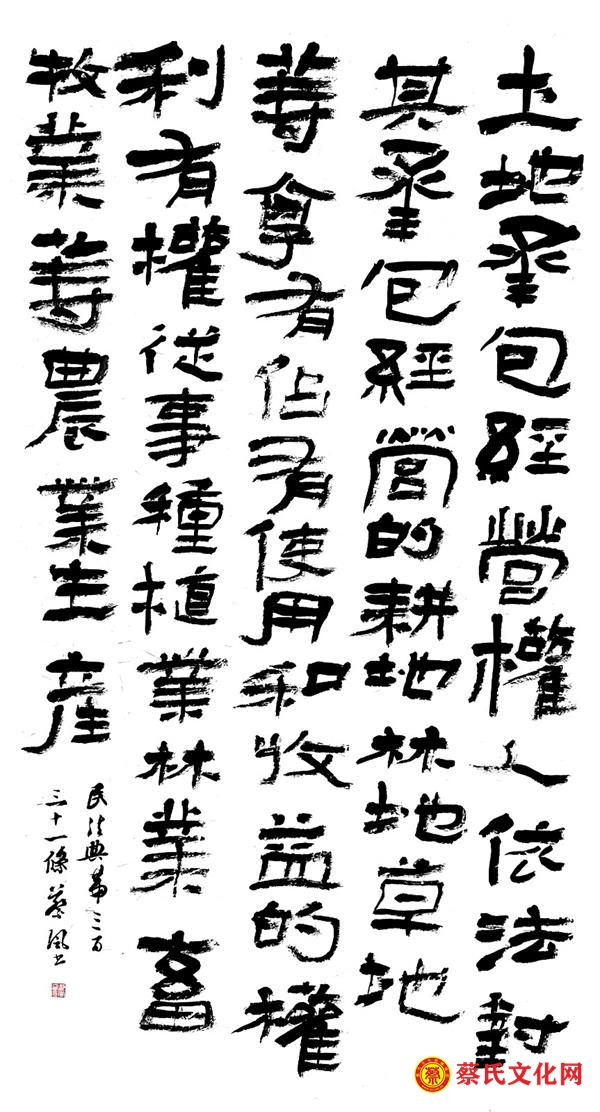 土地承包經營權人依法對
其承包經營的耕地林地草地
等享有佔有使用和收益的權
利有權從事種植業林業畜
牧業等農業生産
民法典第三百
三十一條 蔡風書
蔡氏文化网